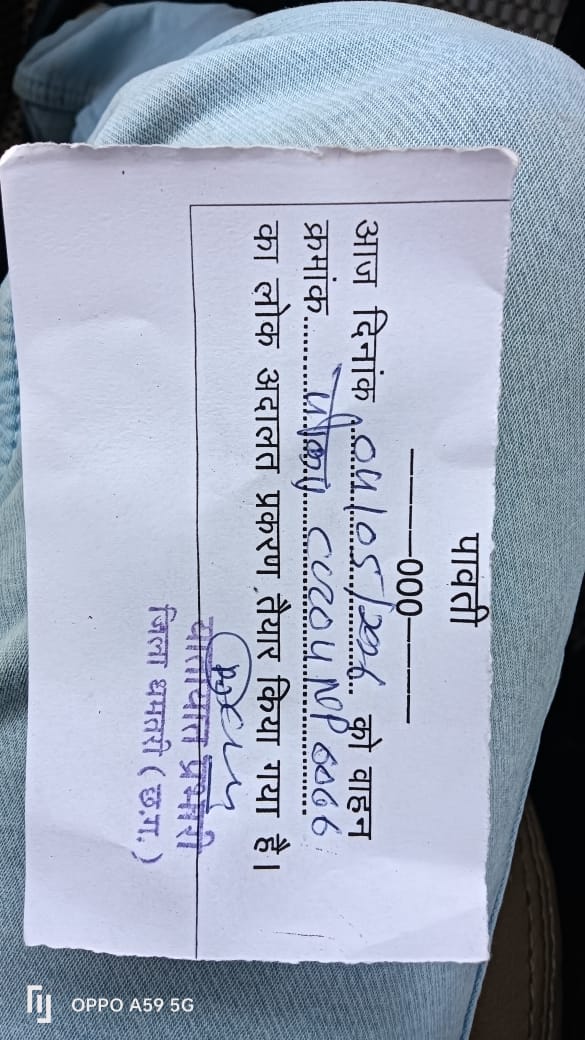 पावती
-----000-----
आज दिनांक 04/05/2026 को वाहन
क्रमांक पीकप CG04NP
का लोक अदालत प्रकरण तैयार किया गया है।
यातायात प्रभारी
जिला धमतरी (छ.ग.)
OPPO A59 5G